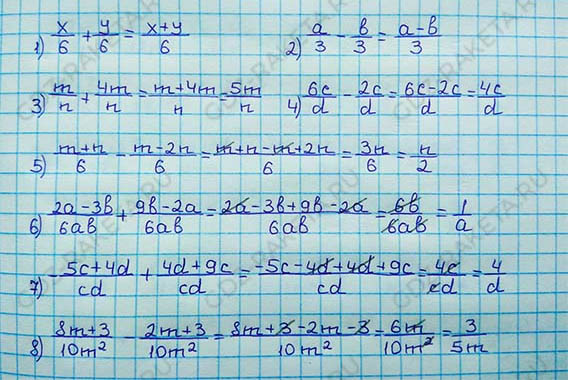 1) x/6 + y/6 = (x+y)/6   2) a/3 - b/3 = (a-b)/3
3) m/n + 4m/n = (m+4m)/n = 5m/n   4) 6c/d - 2c/d = (6c-2c)/d = 4c/d
5) (m+n)/6 - (m-2n)/6 = (m+n-m+2n)/6 = 3n/6 = n/2
6) (2a-3b)/6ab + (9b-2a)/6ab = (2a-3b+9b-2a)/6ab = 6b/6ab = 1/a
7) -(5c+4d)/cd + (4d+9c)/cd = (-5c-4d+4d+9c)/cd = 4c/cd = 4/d
8) (8m+3)/10m² - (2m+3)/10m² = (8m+3-2m-3)/10m² = 6m/10m² = 3/5m
GDZ-RAKETA.RU